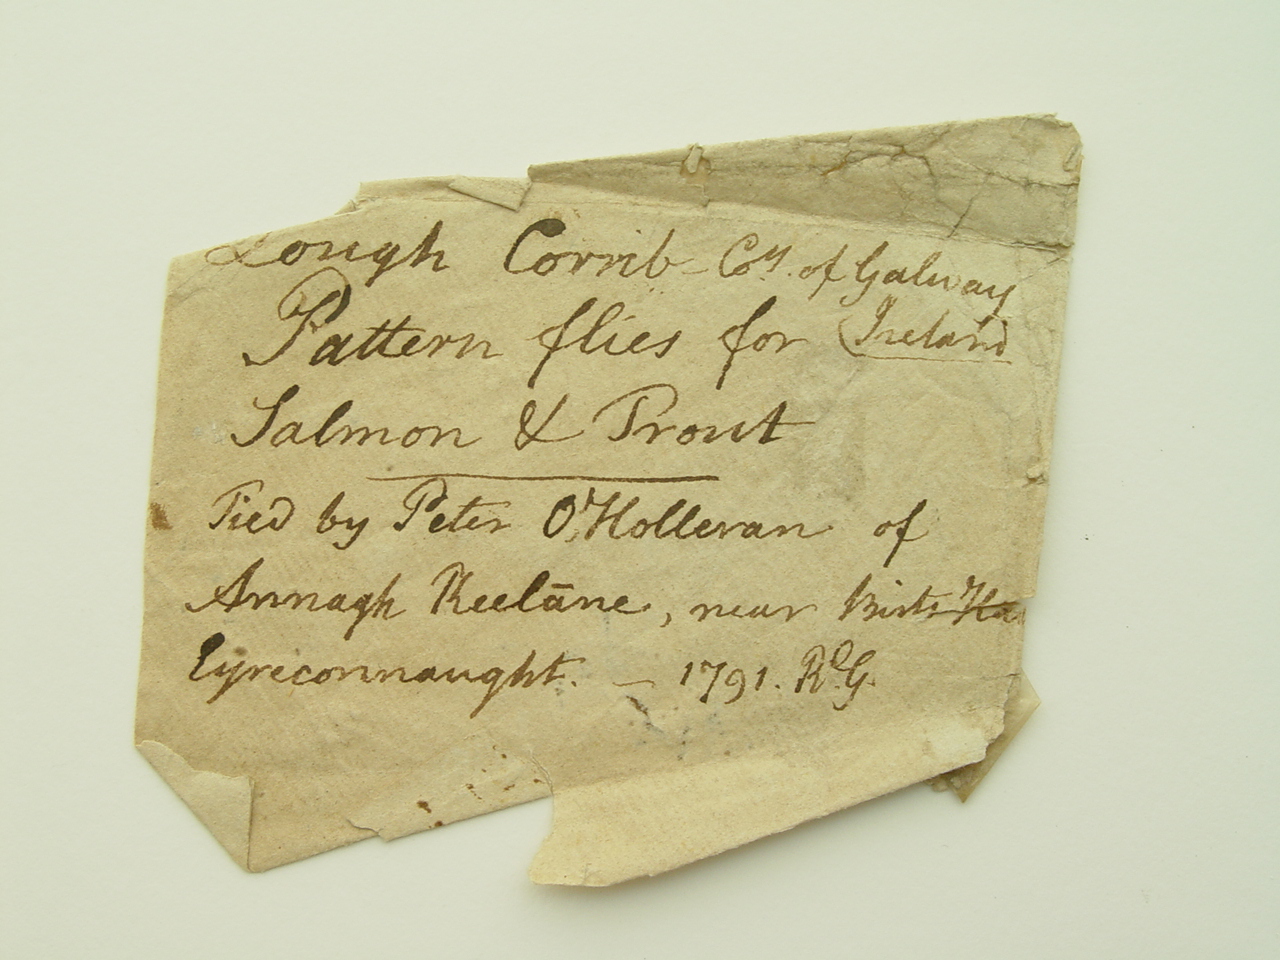 Lough Corrib - Coy. of Galway
Pattern flies for Ireland
Salmon & Trout
Tied by Peter O'Holleran of
Annagh Keelāne, near
Eyreconnaught. — 1791. Rd. G.